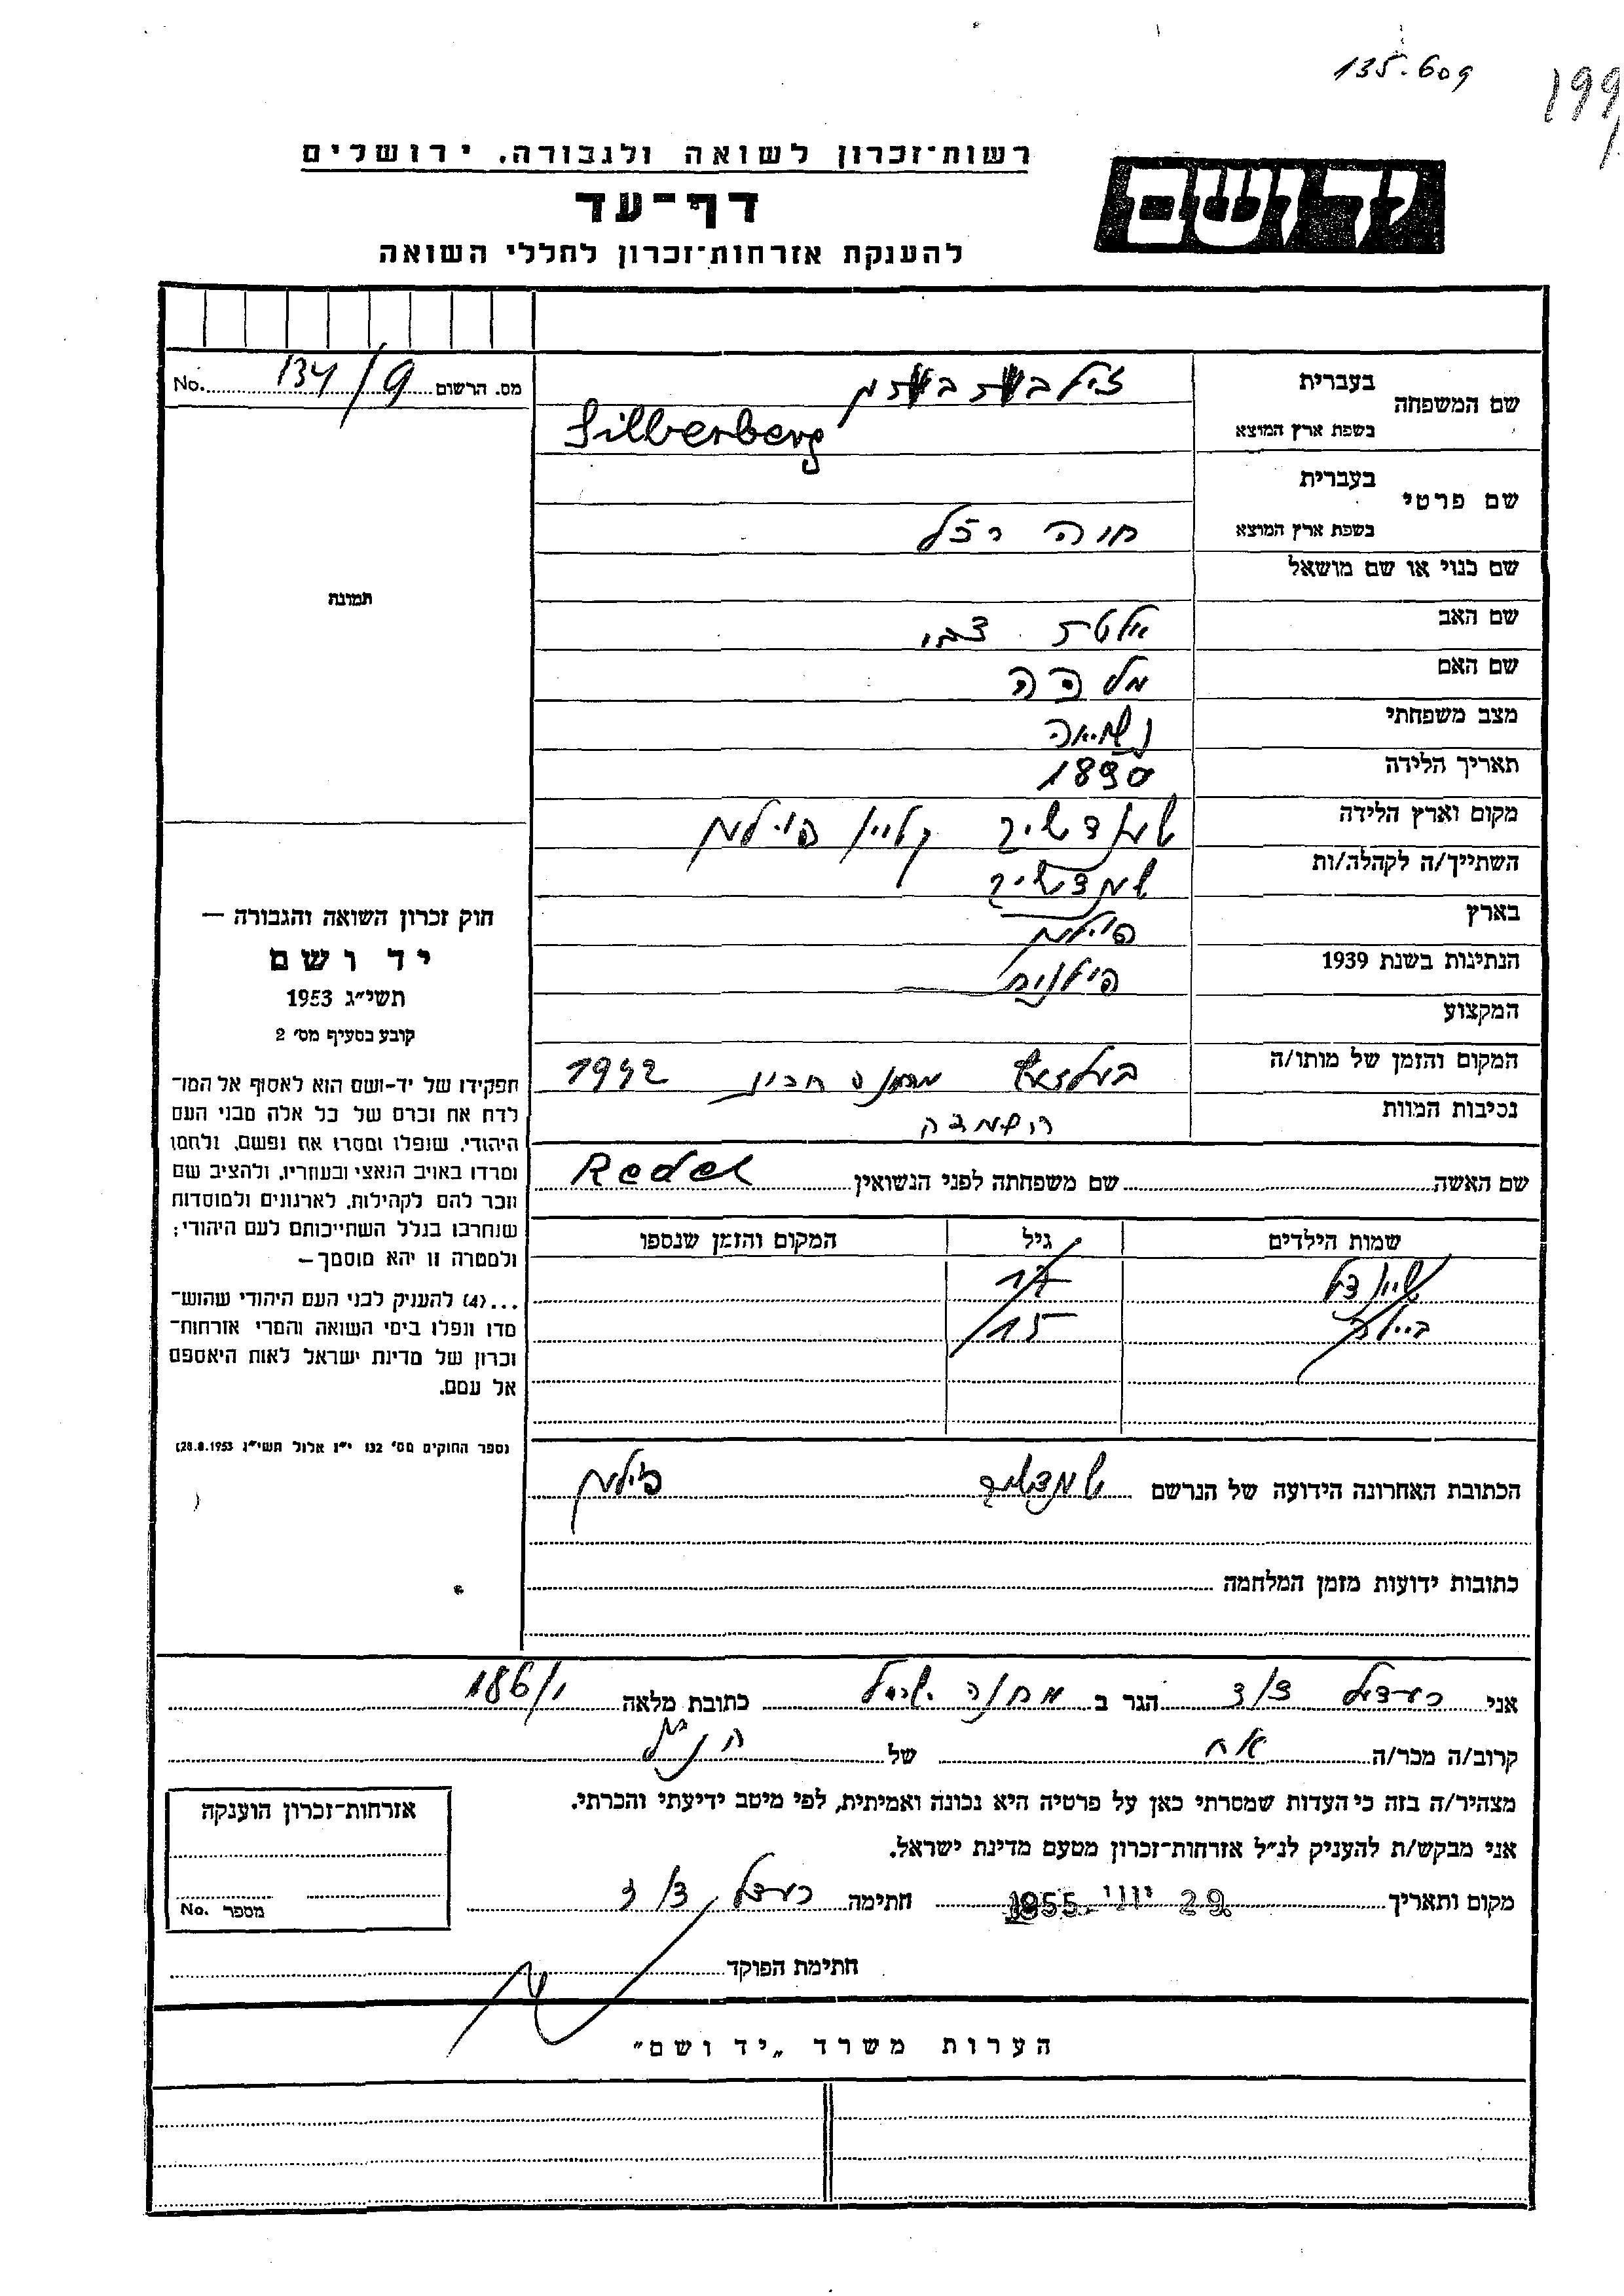 135.609
199
רשות־זכרון לשואה ולגבורה, ירושלים
יד ושם
דף־עד
להענקת אזרחות־זכרון לחללי השואה
No. 134/9 מס. הרשום
שם המשפחה
בעברית
בשפת ארץ המוצא Silberberg
שם פרטי
בעברית
בשפת ארץ המוצא חוה רזל
שם כנוי או שם מושאל
תמונה
שם האב צבי
שם האם מלכה
מצב משפחתי נשואה
תאריך הלידה 1890
מקום וארץ הלידה פוילן
השתייך/ה לקהלה/ות
בארץ פוילן
הנתינות בשנת 1939 פולנית
המקצוע
המקום והזמן של מותו/ה 1942
נסיבות המוות השמדה
שם האשה שם משפחתה לפני הנשואין Redel
שמות הילדים גיל המקום והזמן שנספו
שיינדל 17
ביילה 15
חוק זכרון השואה והגבורה —
יד ושם
תשי״ג 1953
קובע בסעיף מס׳ 2
תפקידו של יד-ושם הוא לאסוף אל המו־
לדת את זכרם של כל אלה מבני העם
היהודי, שנפלו ומסרו את נפשם, נלחמו
ומרדו באויב הנאצי ובעוזריו, ולהציב שם
וזכר להם לקהילות, לארגונים ולמוסדות
שנחרבו בגלל השתייכותם לעם היהודי;
ולמטרה זו יהא מוסמך—
...(4) להעניק לבני העם היהודי שהוש־
מדו ונפלו בימי השואה והמרי אזרחות־
זכרון של מדינת ישראל לאות היאספם
אל עמם.
(ספר החוקים מס׳ 132 י״ז אלול תשי״ג 28.8.1953)
הכתובת האחרונה הידועה של הנרשם פוילן
כתובות ידועות מזמן המלחמה
אני רעדיל הגר ב מחנה ישראל כתובת מלאה 186/1
קרוב/ה מכר/ה אח של הנ״ל
מצהיר/ה בזה כי העדות שמסרתי כאן על פרטיה היא נכונה ואמיתית, לפי מיטב ידיעתי והכרתי.
אני מבקש/ת להעניק לנ״ל אזרחות־זכרון מטעם מדינת ישראל.
מקום ותאריך 29. יוני 1955 חתימה
חתימת הפוקד
אזרחות־זכרון הוענקה
No. מספר
הערות משרד „יד ושם״